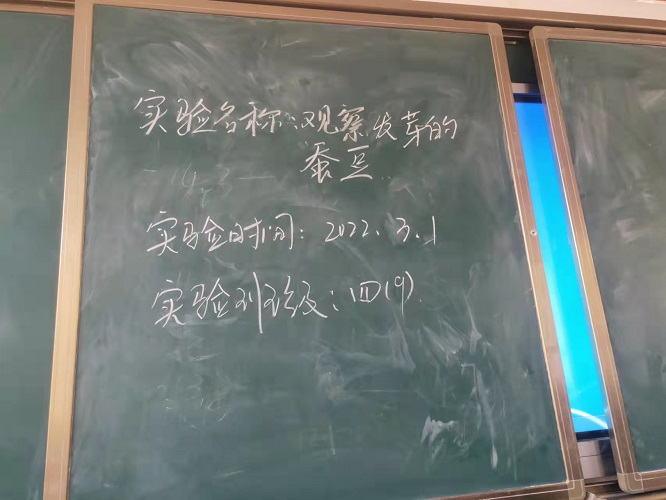 实验名称:观察发芽的
蚕豆
实验时间:2022.3.1
实验班级:四(9)